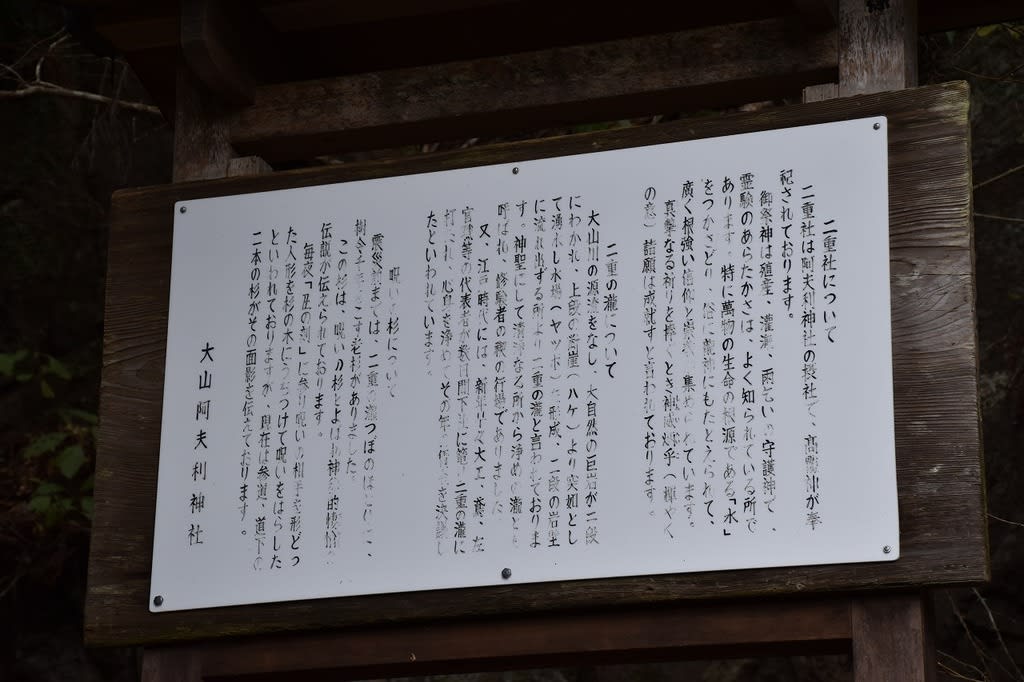 二重社について
二重社は阿夫利神社の摂社で、高龗神が奉
祀されております。
御祭神は殖産、灌漑、雨乞いの守護神で、
霊験のあらたかさは、よく知られている所で
あります。特に萬物の生命の根源である「水」
をつかさどり、俗に龍神にもたとえられて、
廣く根強い信仰と崇敬を集められています。
真摯なる祈りを捧ぐとき神威赫乎(輝やく
の意)諸願は成就すと言われております。
二重の瀧について
大山川の源流をなし、大自然の巨岩が二段
にわかれ、上段の岩崖(ハケ)より突如とし
て湧水し水場(ヤツボ)を形成、二段の岩壁
に流れ出ずる所より二重の瀧と言われておりま
す。神聖にして清浄なる所から浄めの瀧とも
呼ばれ、修験者の禊の行場でありました。
又、江戸時代には、新年早々大工、鳶、左
官職等の代表者が数日間下社に籠り二重の瀧に
打たれ、心身を浄めその年の
たといわれています。
呪いの杉について
震災前までは、二重の瀧つぼのほとりに、
樹令千年をこす老杉がありました。
この杉は、呪いの杉とよばれ神秘的
伝説が伝えられております。
毎夜「丑の刻」に参り呪いの相手を形どっ
た人形を杉の木にうちつけて呪いをはらした
といわれておりますが、現在は参道、道下の
二本の杉がその面影を伝えております。
大山阿夫利神社